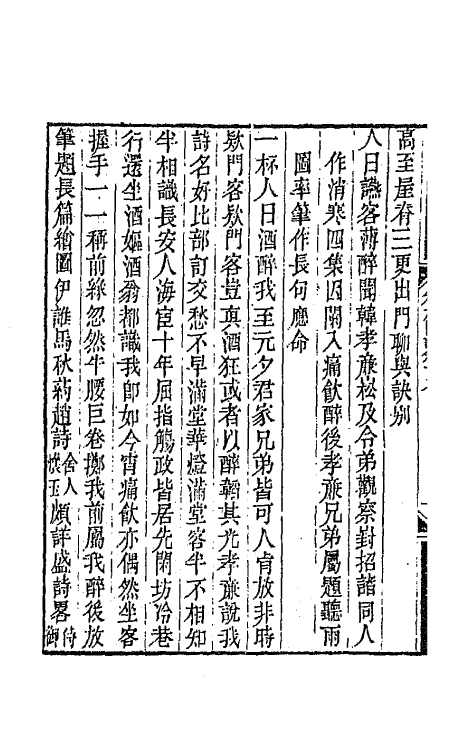 高至屋脊三更出門聊與訣别
人日讌客薄醉聞韓孝廉松及令弟觀察崶招諧同人
作消寒四集因闌入痛飲醉後孝廉兄弟屬題聽雨
圖率筆作長句應命
一杯人日酒醉我至元夕君家兄弟皆可人肯放非時
欵門客欵門客豈真酒狂或者以醉韜其光孝廉說我
詩名好比部訂交愁不早滿堂華燈滿堂客半不相知
半相識長安人海宦十年屈指觴政皆居先閑坊冷巷
行還坐酒嫗酒翁都識我卽如今宵痛飲亦偶然坐客
握手一一稱前緣忽然牛腰巨卷擲我前屬我醉後放
筆題長篇繪圖伊誰馬秋葯趙詩舍人懷玉頗詳盛詩畧侍御